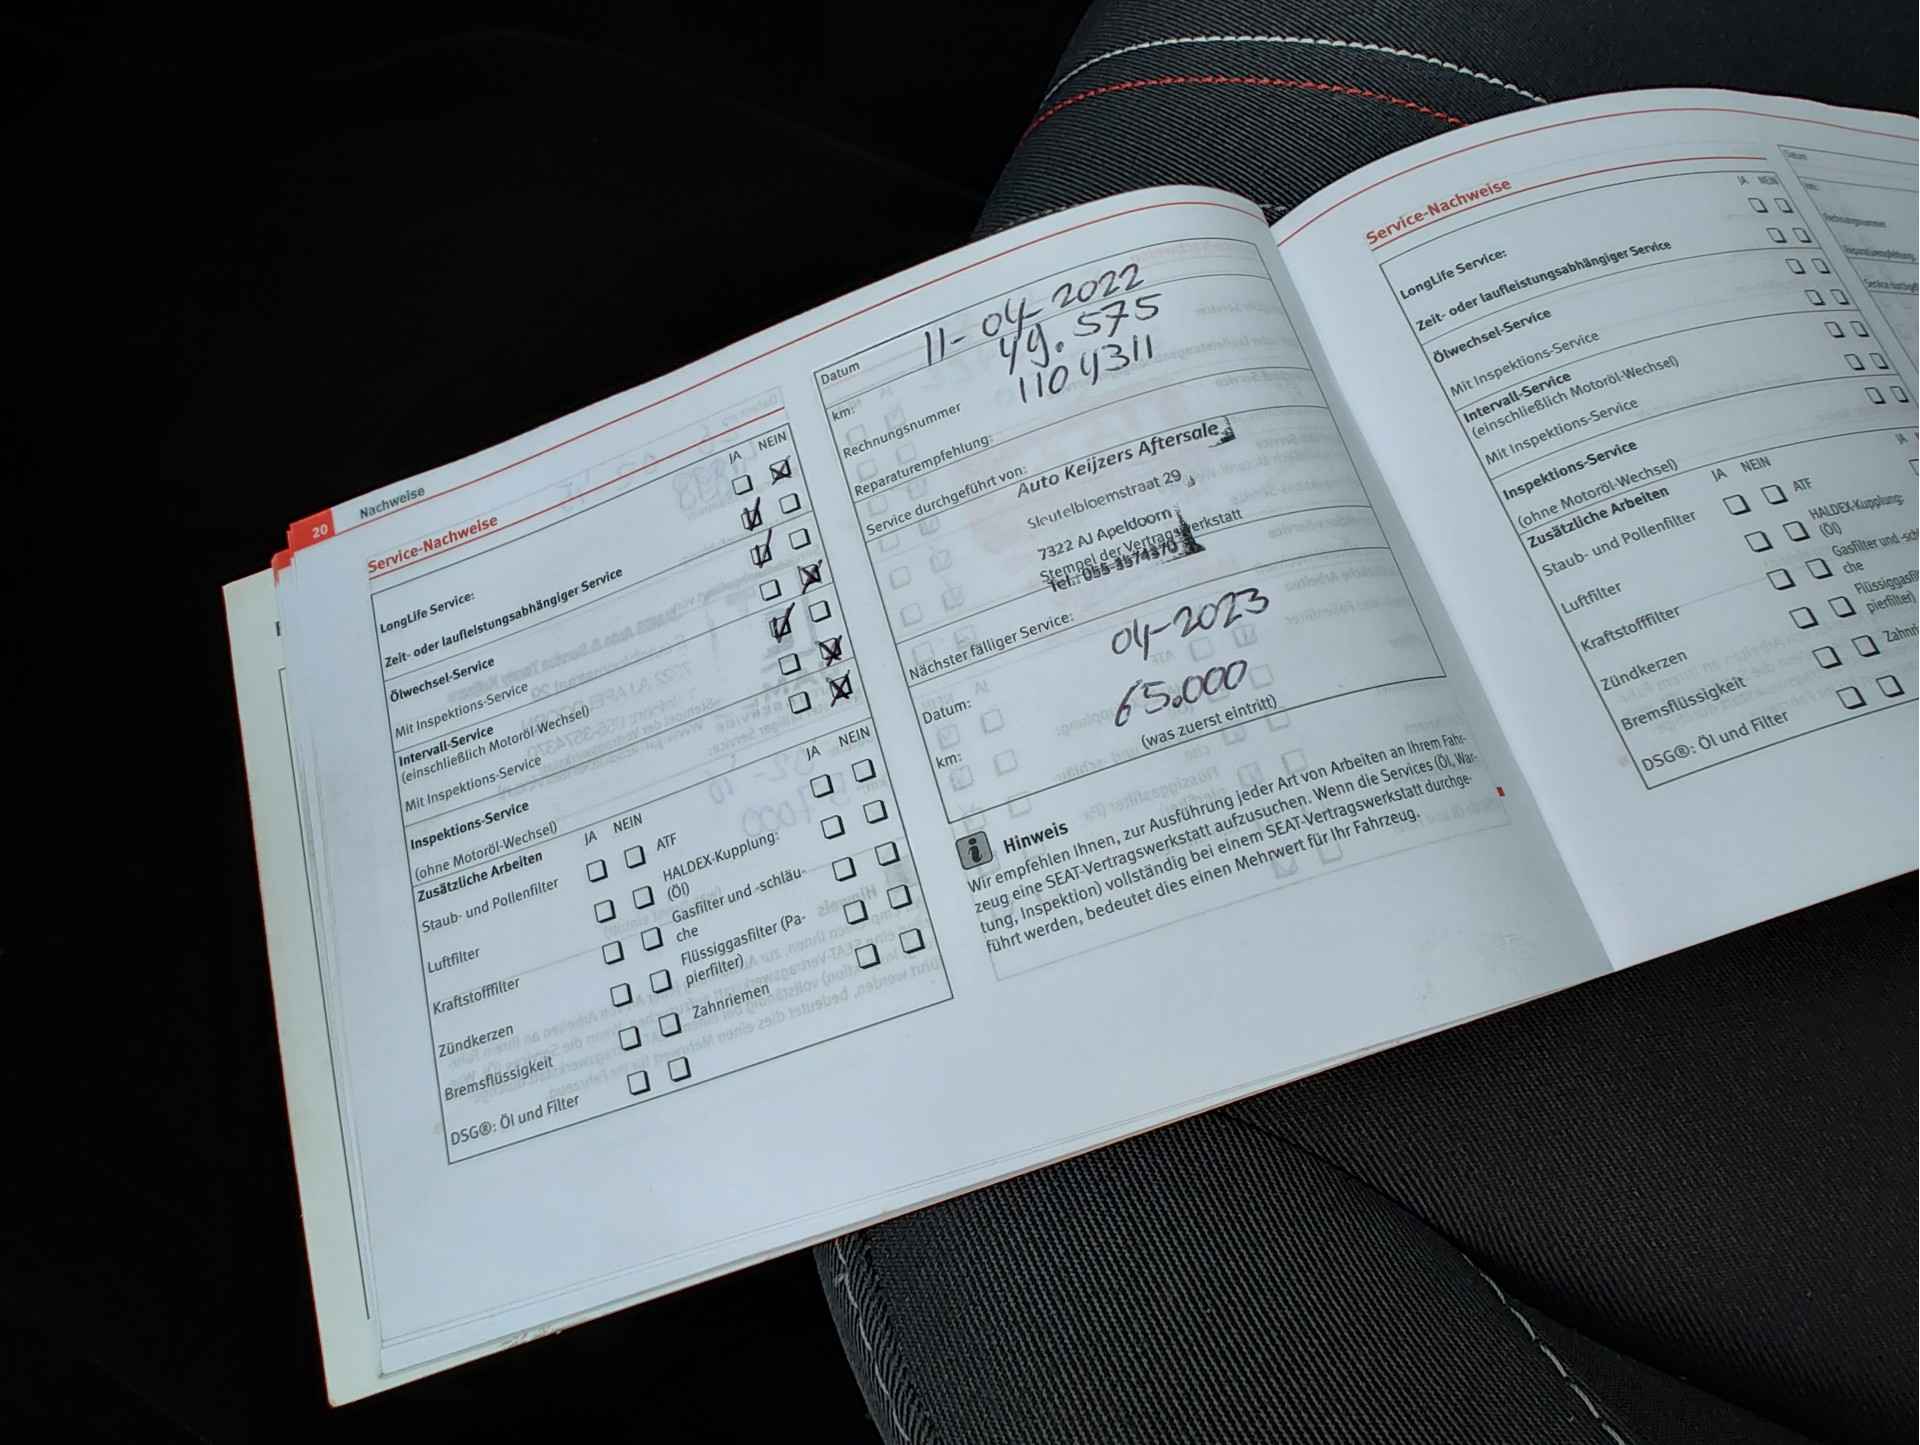 20
Nachweise
Service-Nachweise
JA NEIN
LongLife Service:
Zeit- oder laufleistungsabhängiger Service
Ölwechsel-Service
Mit Inspektions-Service
Intervall-Service
(einschließlich Motoröl-Wechsel)
Mit Inspektions-Service
Inspektions-Service
(ohne Motoröl-Wechsel)
Zusätzliche Arbeiten
JA NEIN
JA NEIN
Staub- und Pollenfilter
Luftfilter
Kraftstofffilter
Zündkerzen
Bremsflüssigkeit
DSG®: Öl und Filter
ATF
HALDEX-Kupplung:
(Öl)
Gasfilter und -schläu-
che
Flüssiggasfilter (Pa-
pierfilter)
Zahnriemen
Datum 11-04-2022
km: 49.575
Rechnungsnummer 1104311
Reparaturempfehlung:
Service durchgeführt von:
Auto Keijzers Aftersale
Sleutelbloemstraat 29
7322 AJ Apeldoorn
Stempel der Vertragswerkstatt
Tel.: 055-3574370
Nächster fälliger Service:
Datum: 04-2023
km: 65.000
(was zuerst eintritt)
Hinweis
Wir empfehlen Ihnen, zur Ausführung jeder Art von Arbeiten an Ihrem Fahr-
zeug eine SEAT-Vertragswerkstatt aufzusuchen. Wenn die Services (Öl, War-
tung, Inspektion) vollständig bei einem SEAT-Vertragswerkstatt durchge-
führt werden, bedeutet dies einen Mehrwert für Ihr Fahrzeug.
Service-Nachweise
JA NEIN
LongLife Service:
Zeit- oder laufleistungsabhängiger Service
Ölwechsel-Service
Mit Inspektions-Service
Intervall-Service
(einschließlich Motoröl-Wechsel)
Mit Inspektions-Service
Inspektions-Service
(ohne Motoröl-Wechsel)
Zusätzliche Arbeiten
JA NEIN
JA
Staub- und Pollenfilter
Luftfilter
Kraftstofffilter
Zündkerzen
Bremsflüssigkeit
DSG®: Öl und Filter
ATF
HALDEX-Kupplung:
(Öl)
Gasfilter und -schl
che
Flüssiggasfi
pierfilter)
Zahnri
Datum
km:
Rechnungsnummer
Reparaturempfehlung: